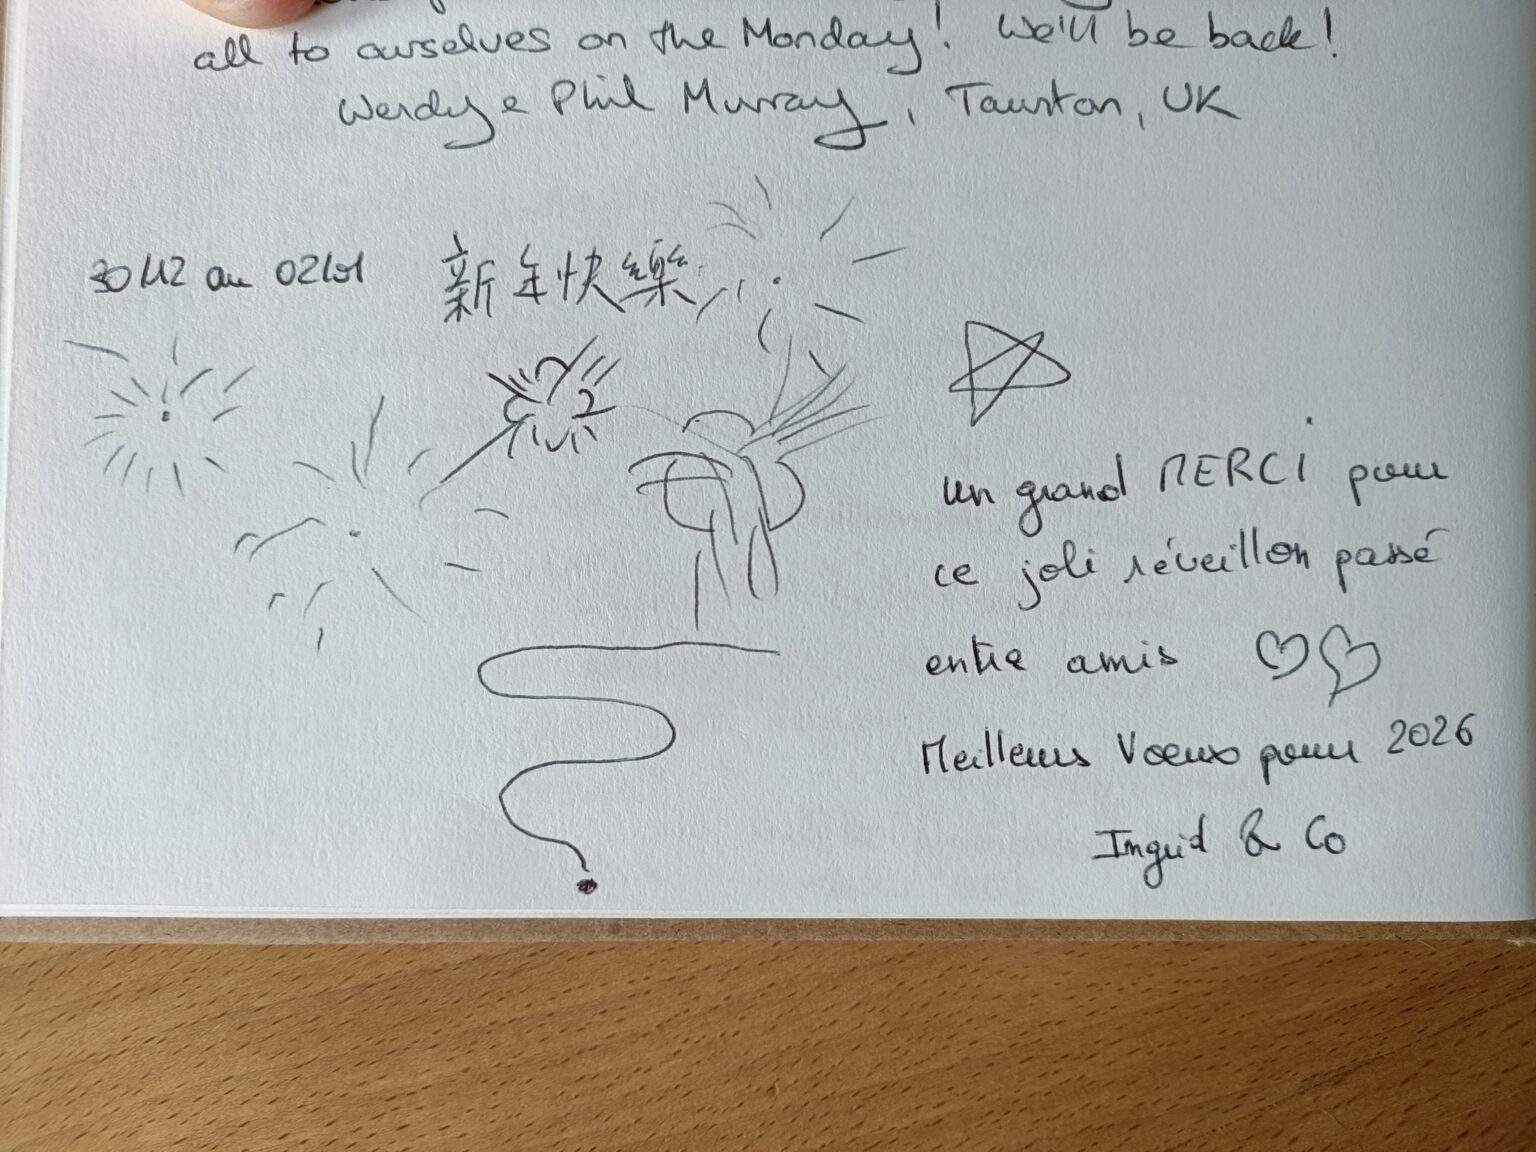 all to ourselves on the Monday! We'll be back!
Wendy & Phil Murray, Taunton, UK
30/12 au 02/01
新年快樂
un grand MERCI pour
ce joli réveillon passé
entre amis
Meilleurs Vœux pour 2026
Ingrid & Co